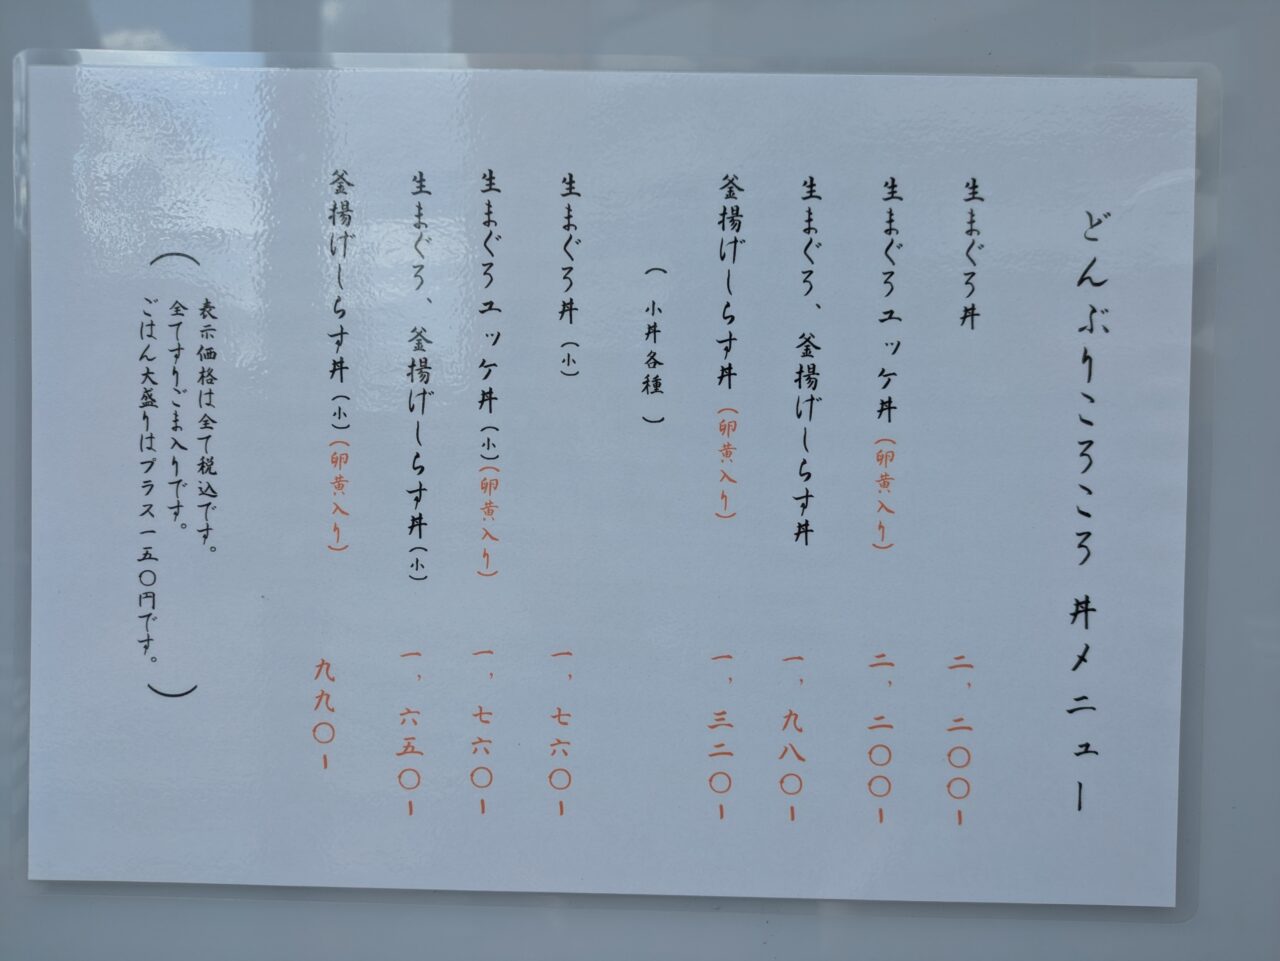 どんぶりころころ 丼メニュー
生まぐろ丼 二、二〇〇ー
生まぐろユッケ丼（卵黄入り） 二、二〇〇ー
生まぐろ、釜揚げしらす丼 一、九八〇ー
釜揚げしらす丼（卵黄入り） 一、三二〇ー
（小丼各種）
生まぐろ丼（小） 一、七六〇ー
生まぐろユッケ丼（小）（卵黄入り） 一、七六〇ー
生まぐろ、釜揚げしらす丼（小） 一、六五〇ー
釜揚げしらす丼（小）（卵黄入り） 九九〇ー
（表示価格は全て税込です。
全てすりごま入りです。
ごはん大盛りはプラス一五〇円です。）